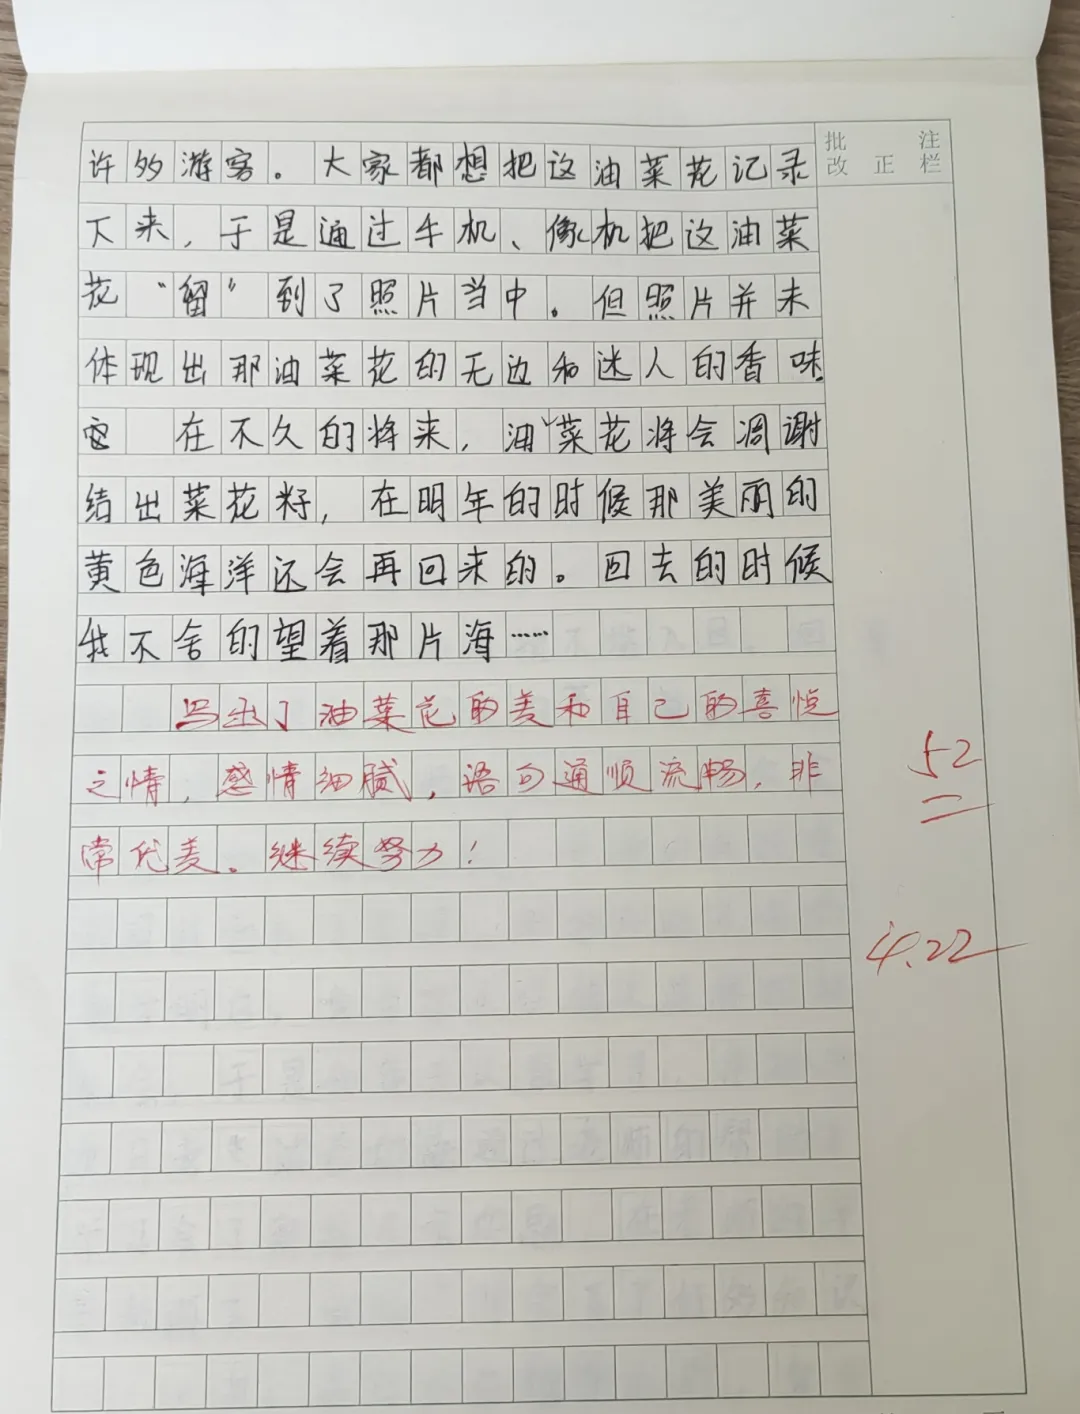 批 注
改 正 栏
许多游客。大家都想把这油菜花记录
下来,于是通过手机、像机把这油菜
花“留”到了照片当中。但照片并未
体现出那油菜花的无边和迷人的香味.
在不久的将来,油菜花将会凋谢
结出菜花籽,在明年的时候那美丽的
黄色海洋还会再回来的。回去的时候
我不舍的望着那片海……
写出了油菜花的美和自己的喜悦
之情,感情细腻,语句通顺流畅,非
常优美。继续努力!
52
4.22